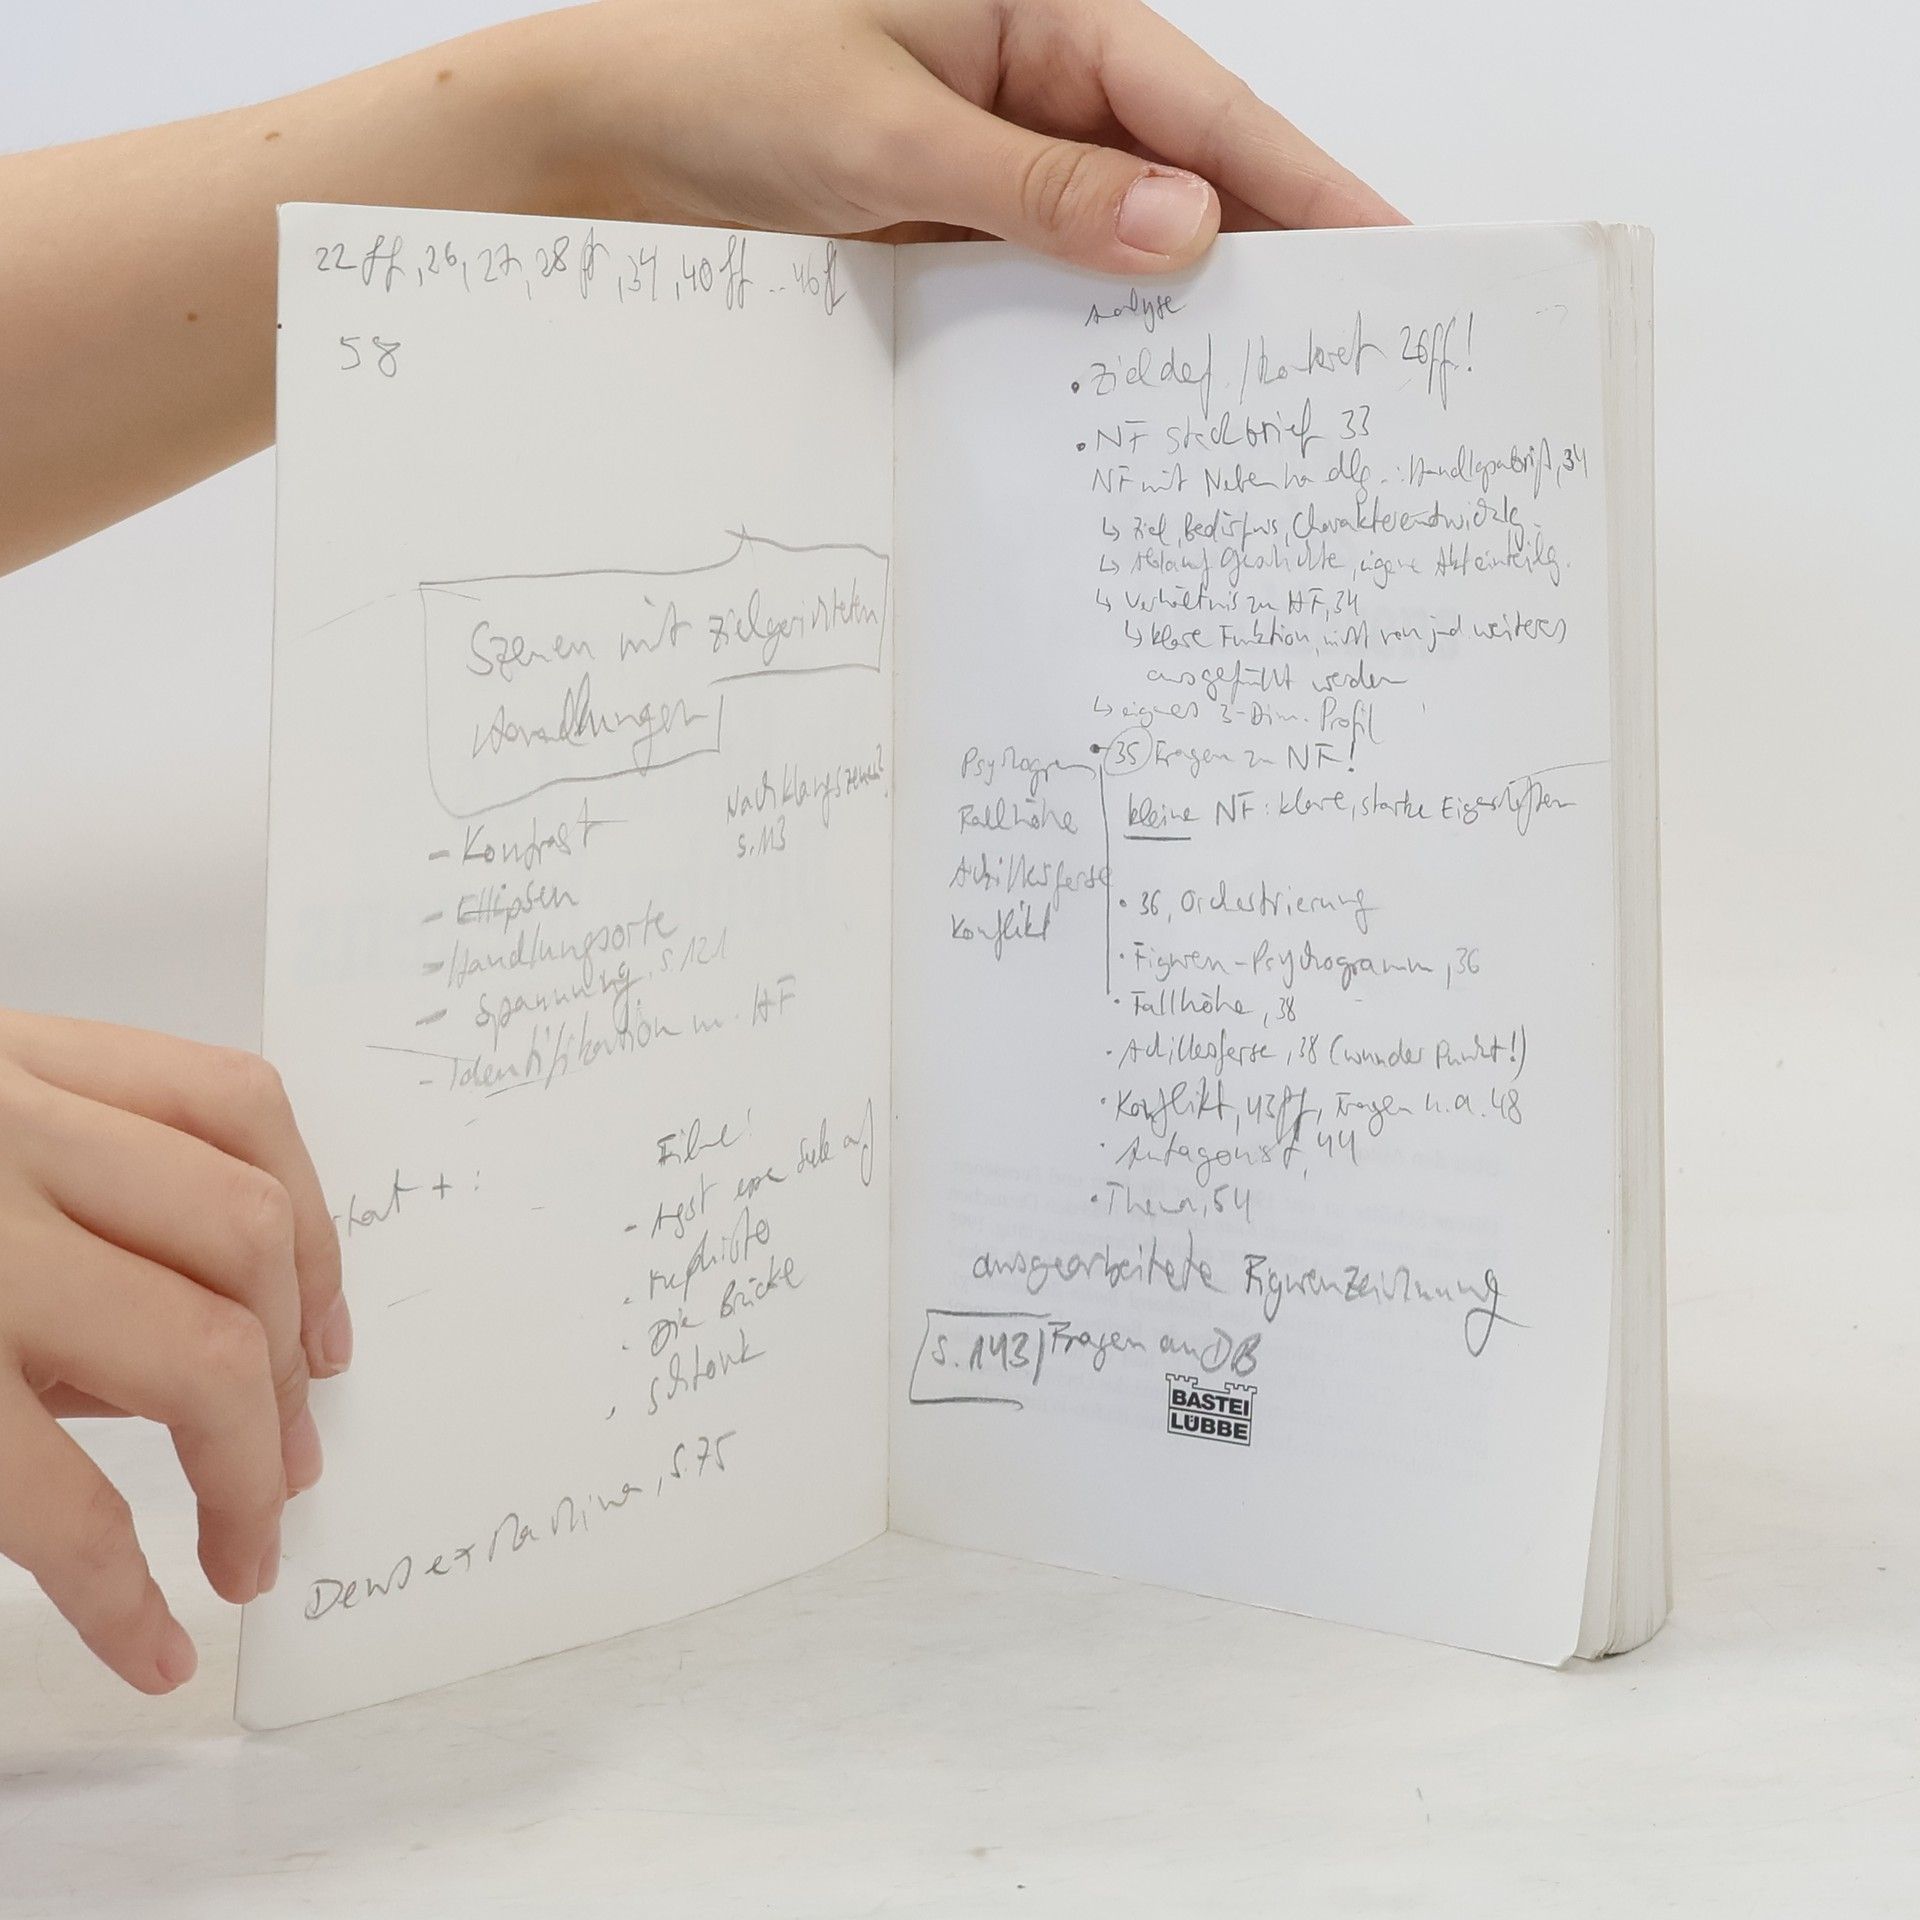 22 ff, 26, 27, 28 ff, 34, 40 ff .. 46 ff
58
Szenen mit zielgerichteten
Handlungen
Nachklangszenen?
S. 113
- Kontrast
- Ellipsen
- Handlungsorte
- Spannung, S. 121
- Identifikation m. HF
+ :
Filme:
- Angst essen Seele auf
- Mephisto
- Die Brücke
- Schtonk
Deus ex Machina, S. 75
Analyse
• Zieldef. / Konkret 26 ff!
• NF Steckbrief 33
NF mit Nebenhandlg.: Handlgsabriß, 34
↳ Ziel, Bedürfnis, Charakterentwicklg.
↳ Ablauf Geschichte, eigene Akteinteilg.
↳ Verhältnis zu HF, 34
↳ klare Funktion, nicht von jed. weiteres
ausgefüllt werden
↳ eigenes 3-Dim. Profil
• 35 Fragen zu NF!
kleine NF: klare, starke Eigenschaften
Psychogramm
Fallhöhe
Achillesferse
Konflikt
• 36, Orchestrierung
• Figuren-Psychogramm, 36
• Fallhöhe, 38
• Achillesferse, 38 (wunder Punkt!)
• Konflikt, 43 ff, Fragen u.a. 48
• Antagonist, 44
• Thema, 54
ausgearbeitete Figurenzeichnung
S. 143 Fragen an DB
BASTEI
LÜBBE